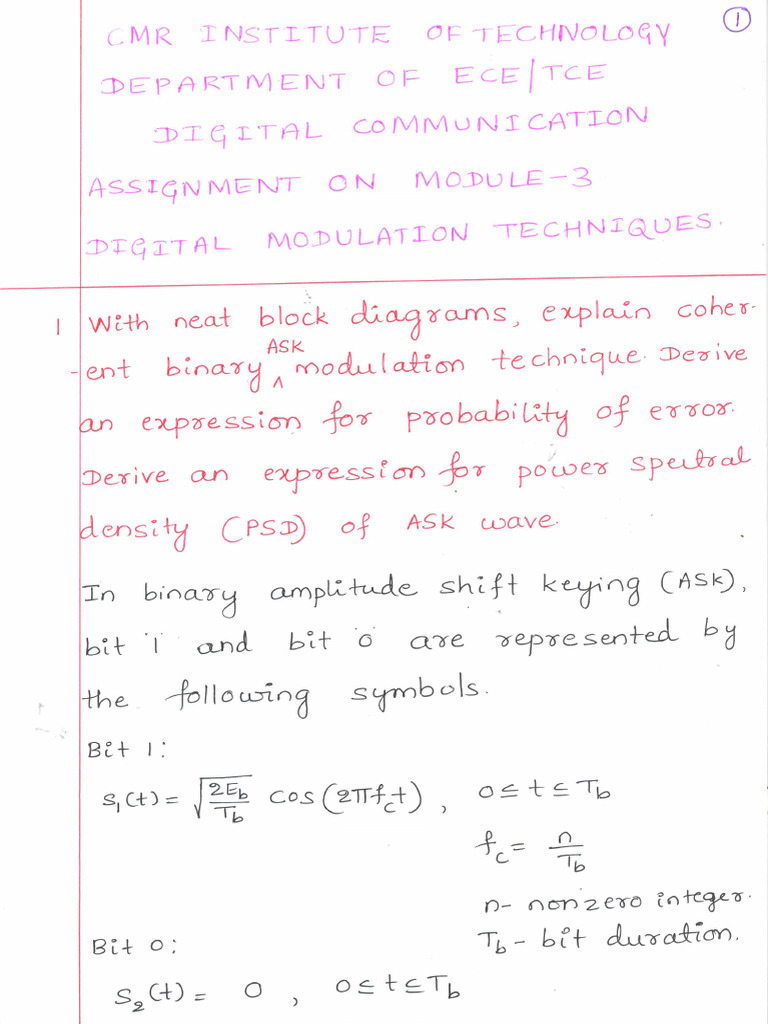 1
CMR INSTITUTE OF TECHNOLOGY
DEPARTMENT OF ECE/TCE
DIGITAL COMMUNICATION
ASSIGNMENT ON MODULE-3
DIGITAL MODULATION TECHNIQUES.
1 With neat block diagrams, explain coher-
-ent binary ASK modulation technique. Derive
an expression for probability of error.
Derive an expression for power spectral
density (PSD) of ASK wave.
In binary amplitude shift keying (ASK),
bit 1 and bit 0 are represented by
the following symbols.
Bit 1:
S₁(t) = √(2E_b/T_b) cos(2πf_ct), 0≤t≤T_b
f_c = n/T_b
n- nonzero integer.
T_b - bit duration.
Bit 0:
S₂(t) = 0, 0≤t≤T_b